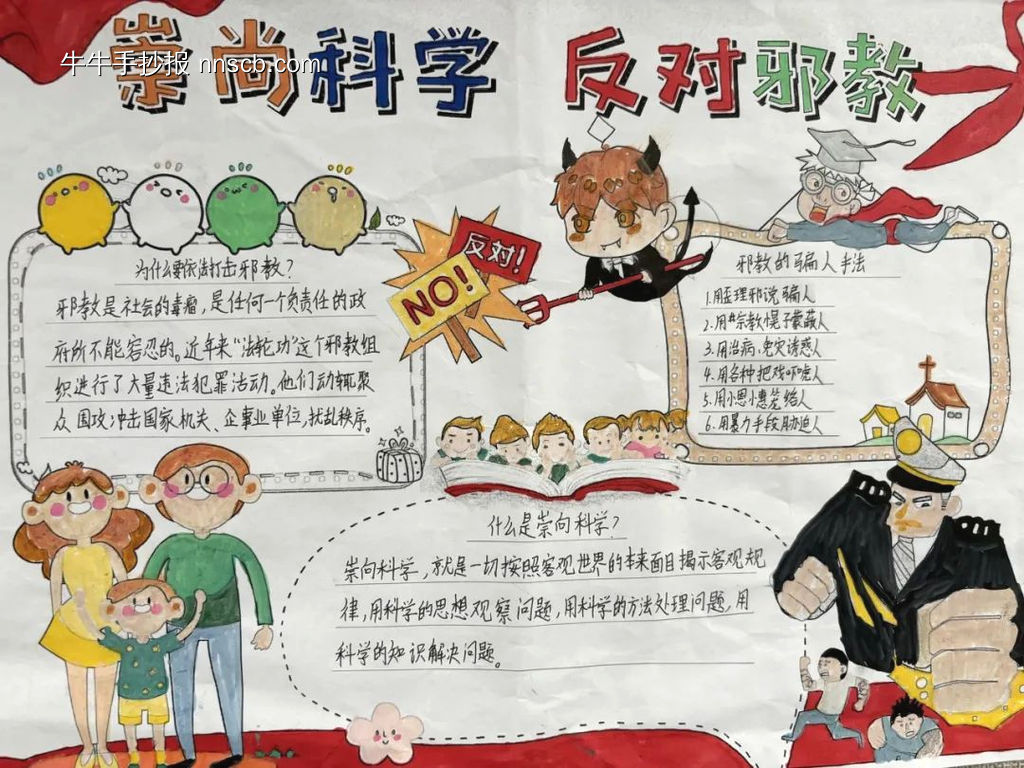 崇尚科学 反对邪教
牛牛手抄报 nnscb.com
为什么要依法打击邪教?
邪教是社会的毒瘤,是任何一个负责任的政
府所不能容忍的。近年来“法轮功”这个邪教组
织进行了大量违法犯罪活动。他们动辄聚
众围攻;冲击国家机关、企事业单位,扰乱秩序。
反对!
NO!
邪教的骗人手法
1.用歪理邪说骗人
2.用宗教幌子蒙蔽人
3.用治病,免灾诱惑人
4.用各种把戏吓唬人
5.用小恩小惠笼络人
6.用暴力手段胁迫人
什么是崇向科学?
崇向科学,就是一切按照客观世界的本来面目揭示客观规
律,用科学的思想观察问题,用科学的方法处理问题,用
科学的知识解决问题。